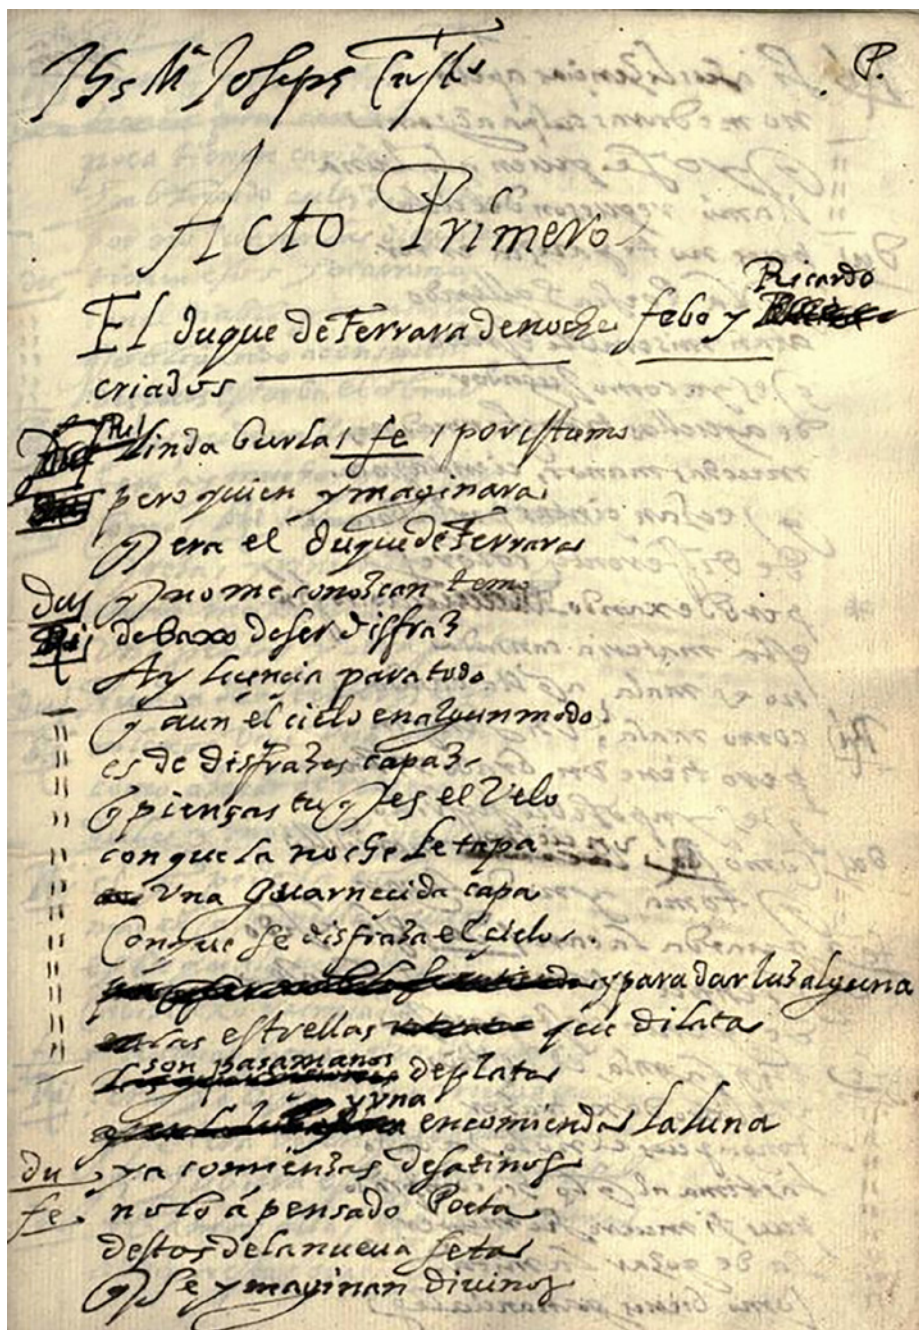 Jhs Mª Josephs Custos P.
Acto Primero
Ricardo
El duque de Ferrara de noche, febo y
criados
Ri linda burla / fe / por estremo
pero quien ymaginara
q era el duque de Ferrara
du q no me conozcan temo
Ri debaxo de ser disfraz
ay licencia para todo
q aun el cielo en algun modo
es de disfrazes capaz
q piensas tu q es el velo
con que la noche le tapa
una guarnecida capa
con que se disfraza el cielo
y para dar luz alguna
las estrellas que dilata
son pasamanos de plata
y una encomienda la luna
du ya comienzas desatinos
fe no lo á pensado Poeta
destos de la nueva seta
q se ymaginan divinos